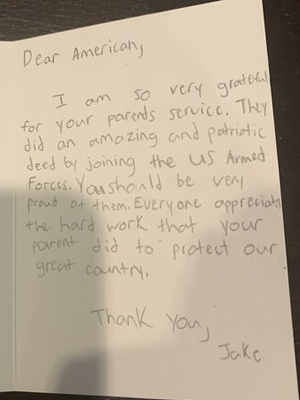 Dear American,
I am so very grateful
for your parents service. They
did an amazing and patriotic
deed by joining the US Armed
Forces. You should be very
proud of them. Everyone appreciates
the hard work that your
parent did to protect our
great country.
Thank You,
Jake